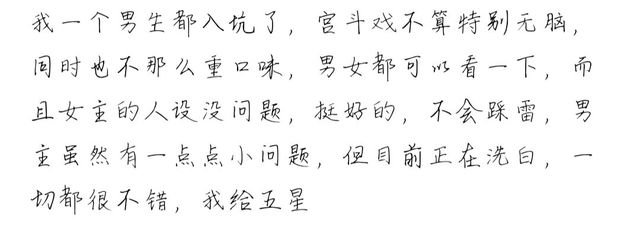 我一个男生都入坑了，宫斗戏不算特别无脑，
同时也不那么重口味，男女都可以看一下，而
且女主的人设没问题，挺好的，不会踩雷，男
主虽然有一点点小问题，但目前正在洗白，一
切都很不错，我给五星